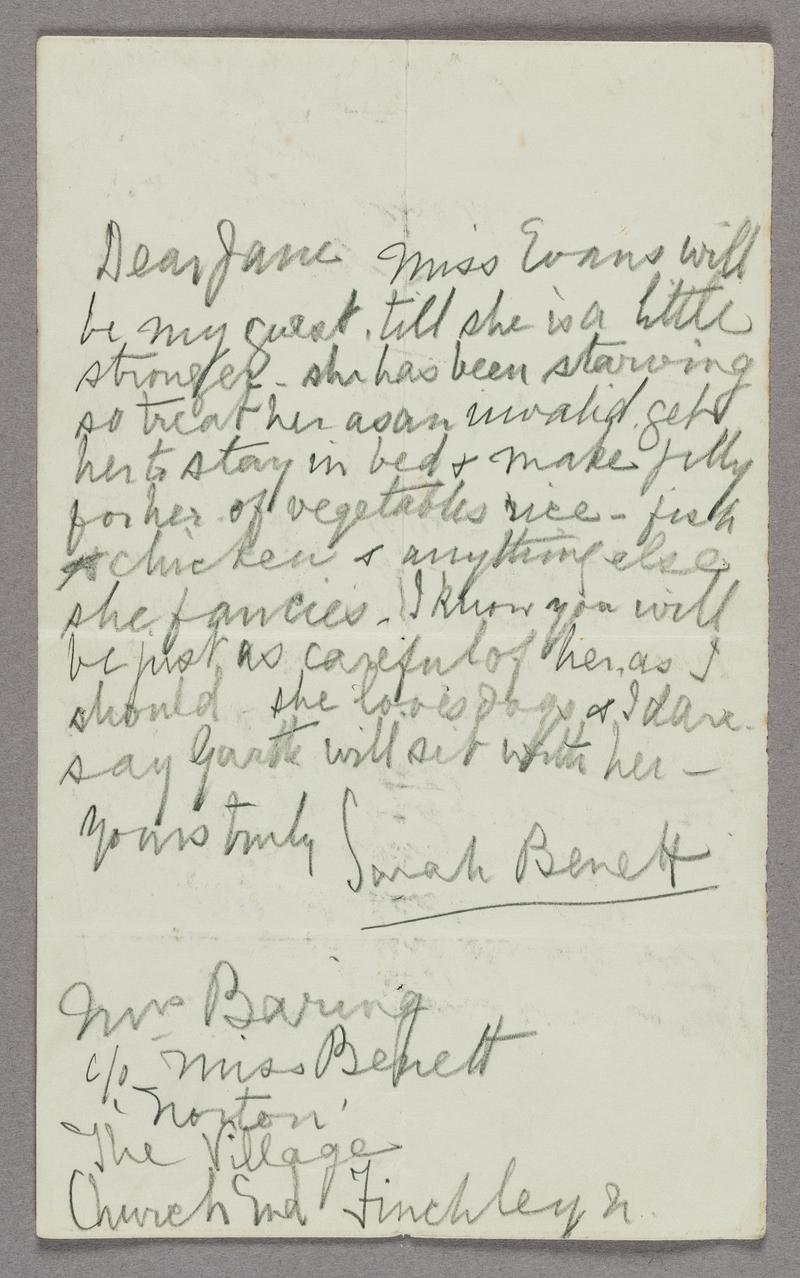 Dear Jane Miss Evans will
be my guest. till she is a little
stronger - she has been starving
so treat her as an invalid. get
her to stay in bed & make jelly
for her of vegetables rice - fish
& chicken & anything else
she fancies. I know you will
be just as careful of her as I
should - she loves dogs & I dare
say Garth will sit with her -
yours truly Sarah Benett
Mrs Baring
c/o Miss Benett
'Norton'
The Village
Church End Finchley N.